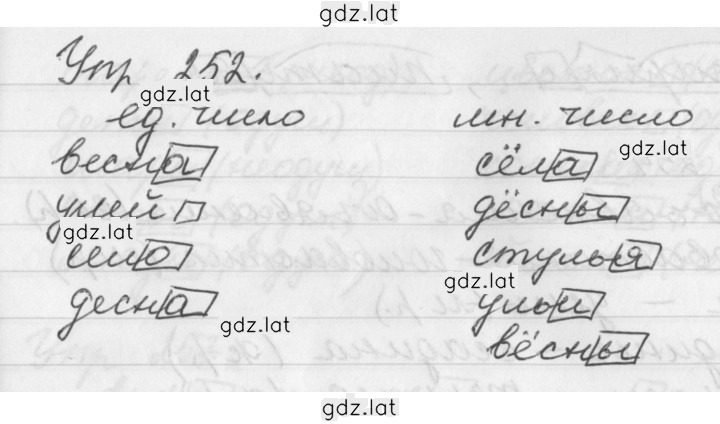 gdz.lat
Упр 252.
gdz.lat
ед. число
мн. число
gdz.lat
весна
сёла
улей
дёсны
gdz.lat
село
стулья
gdz.lat
десна
ульи
gdz.lat
вёсны
gdz.lat